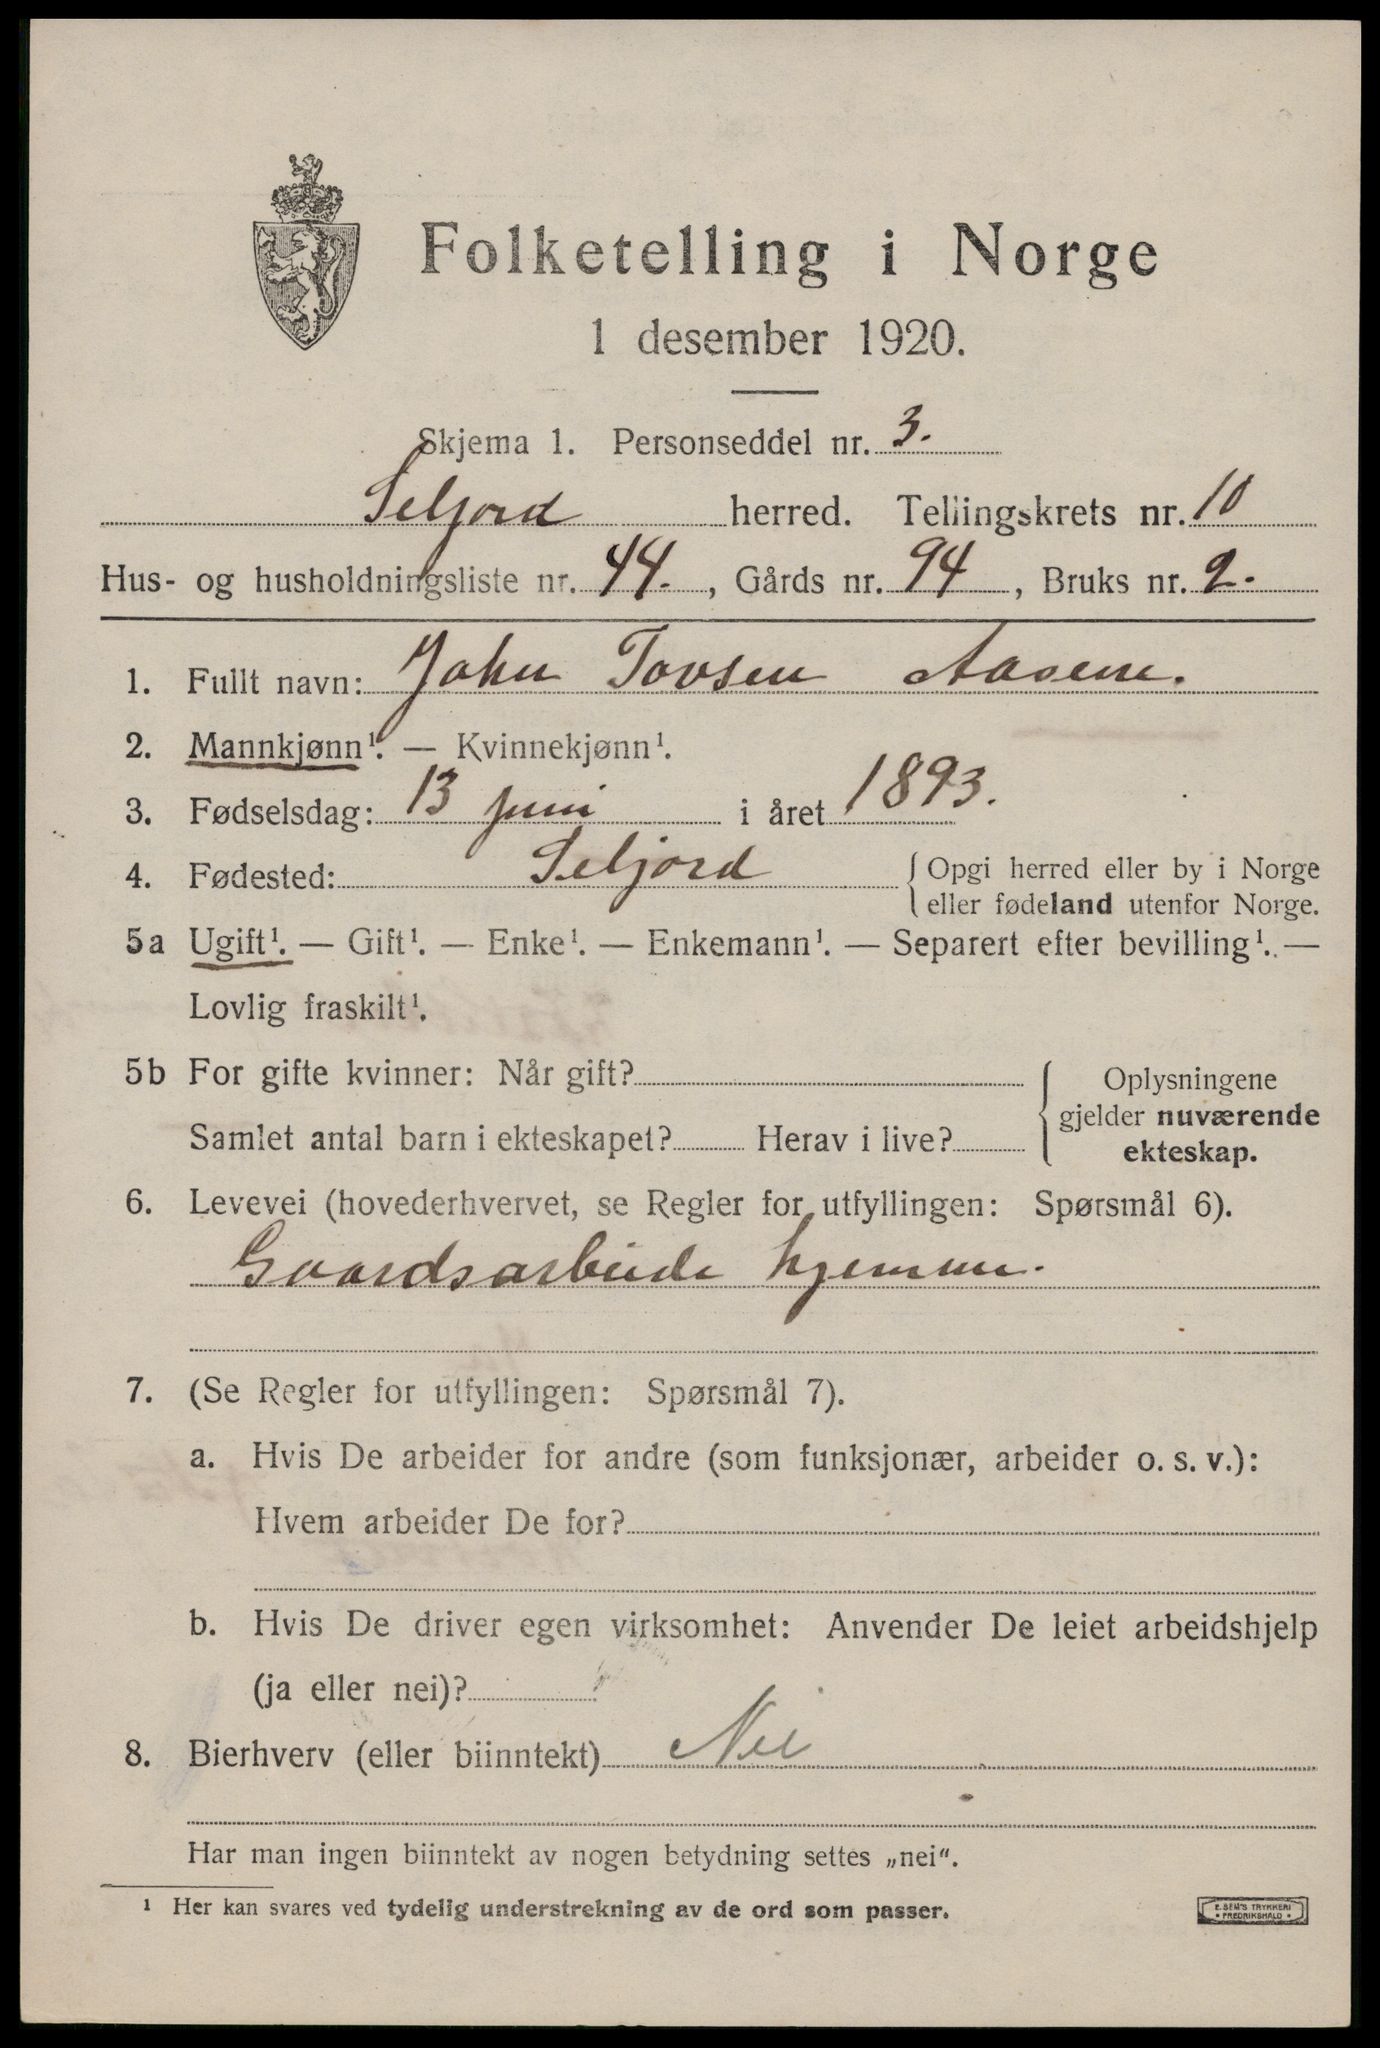 Folketelling i Norge
1 desember 1920.
Skjema 1. Personseddel nr. 3.
Seljord herred. Tellingskrets nr. 10
Hus- og husholdningsliste nr. 44., Gårds nr. 94, Bruks nr. 2.
1. Fullt navn: John Tovsen Aasene.
2. Mannkjønn¹. — Kvinnekjønn¹.
3. Fødselsdag: 13 juni i året 1893.
4. Fødested: Seljord { Opgi herred eller by i Norge
eller fødeland utenfor Norge.
5a Ugift¹. — Gift¹. — Enke¹. — Enkemann¹. — Separert efter bevilling¹. —
Lovlig fraskilt¹.
5b For gifte kvinner: Når gift?
Samlet antal barn i ekteskapet? Herav i live?
{ Oplysningene
gjelder nuværende
ekteskap.
6. Levevei (hovederhvervet, se Regler for utfyllingen: Spørsmål 6).
Gaardsarbeide hjemme.
7. (Se Regler for utfyllingen: Spørsmål 7).
a. Hvis De arbeider for andre (som funksjonær, arbeider o. s. v.):
Hvem arbeider De for?
b. Hvis De driver egen virksomhet: Anvender De leiet arbeidshjelp
(ja eller nei)?
8. Bierhverv (eller biinntekt) Nei
Har man ingen biinntekt av nogen betydning settes „nei“.
¹ Her kan svares ved tydelig understrekning av de ord som passer.
E. SEM'S TRYKKERI
• FREDRIKSHALD •